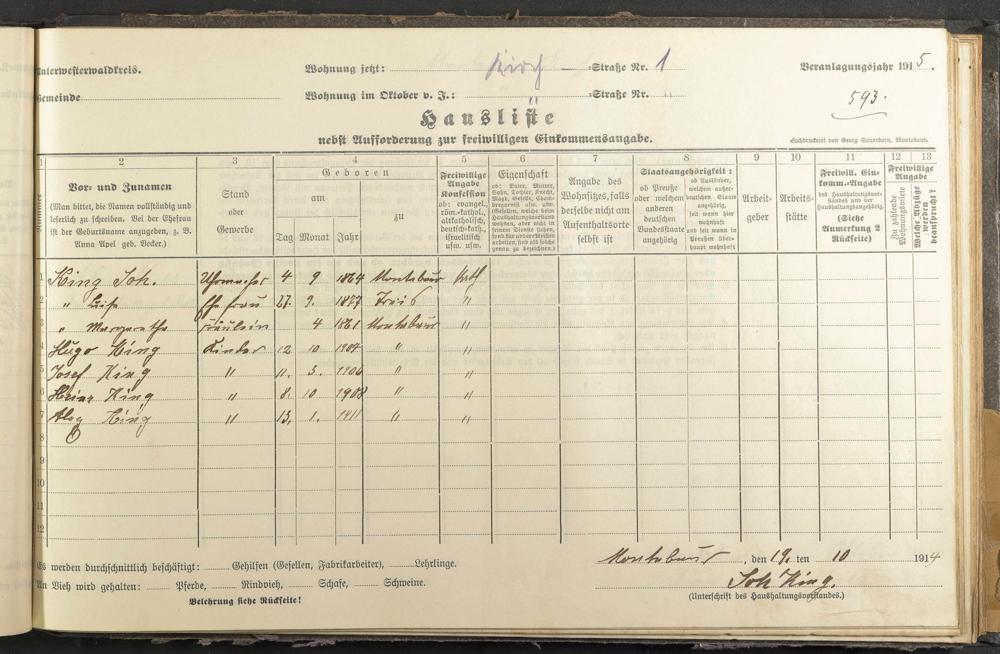 Unterwesterwaldkreis.
Wohnung jetzt: Kirch -Straße Nr. 1
Veranlagungsjahr 1915.
Gemeinde
Wohnung im Oktober v. J.: " -Straße Nr. "
593.
Hausliste
nebst Aufforderung zur freiwilligen Einkommensangabe.
Buchdruckerei von Georg Sauerborn, Montabaur.
1 2 3 4 5 6 7 8 9 10 11 12 13
Nummer
Vor- und Zunamen
(Man bittet, die Namen vollständig und
leserlich zu schreiben. Bei der Ehefrau
ist der Geburtsname anzugeben, z. B.
Anna Apel geb. Becker.)
Stand
oder
Gewerbe
Geboren
am
zu
Tag Monat Jahr
Freiwillige
Angabe
Konfession
ob: evangel.,
röm.-kathol.,
altkatholisch,
deutsch-kath.,
israelitisch
usw. usw.
Eigenschaft
ob: Vater, Mutter,
Sohn, Tochter, Knecht,
Magd, Geselle, Cham-
bregarnist usw. usw.
Angabe des
Wohnsitzes, falls
derselbe nicht am
Aufenthaltsorte
selbst ist
Staatsangehörigkeit:
ob Preuße
oder welchem
anderen
deutschen
Bundesstaate
angehörig
ob Ausländer,
welchem außer-
deutschen Staate
angehörig,
seit wann hier
wohnhaft
und seit wann in
Preußen über-
haupt wohnhaft
Arbeit-
geber
Arbeits-
stätte
Freiwill. Ein-
komm.-Angabe
des Haushaltungsvor-
standes und der
Haushaltungsangehörig.
(Siehe
Anmerkung 2
Rückseite)
Freiwillige
Angabe
Zu zahlende
Wohnungsmiete
Welche Abzüge
werden
beansprucht?
1 King Joh. Uhrmacher 4 9 1864 Montabaur kath
2 " Luise Ehefrau 27. 9. 1877 Treis "
3 " Margaretha Fräulein 4 1861 Montabaur "
4 Hugo King Kinder 12 10 "  "
5 Josef King " 11. 3. 1906 " "
6 Heinr King " 8. 10 1908 " "
7 King " 13. 1. 1911 " "
8
9
10
11
12
Es werden durchschnittlich beschäftigt: Gehilfen (Gesellen, Fabrikarbeiter), Lehrlinge.
Montabaur, den 19. ten 10 1914
An Vieh wird gehalten: Pferde, Rindvieh, Schafe, Schweine.
Joh King.
Belehrung siehe Rückseite!
(Unterschrift des Haushaltungsvorstandes.)